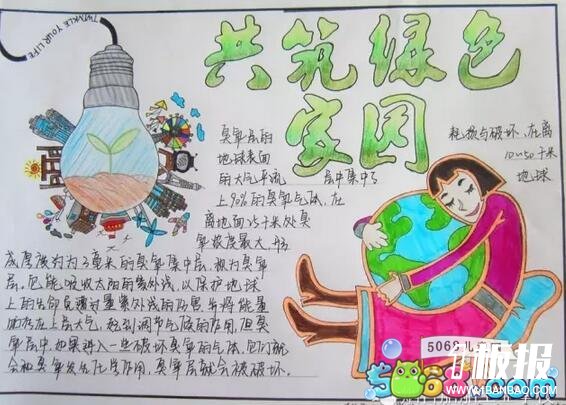 TWINKLE YOUR LIFE
共筑绿色
家园
臭氧层的
地球表面
的大气平流层中集中了
上90%的臭氧气体,在
离地面25千米处臭
氧浓度最大,形
成厚度约为3毫米的臭氧集中层,称为臭氧
层,它能吸收太阳的紫外线,以保护地球
上的生命免遭过量紫外线的伤害,并将能量
贮存在上层大气,起到调节气候的作用,但臭
氧层中如果进入一些破坏臭氧的气体,它们就
会和臭氧发生化学作用,臭氧层就会被破坏.
耗损与破坏,在离
10~50千米
地球
5068儿童
板报
5068.com
1BANBAO.COM